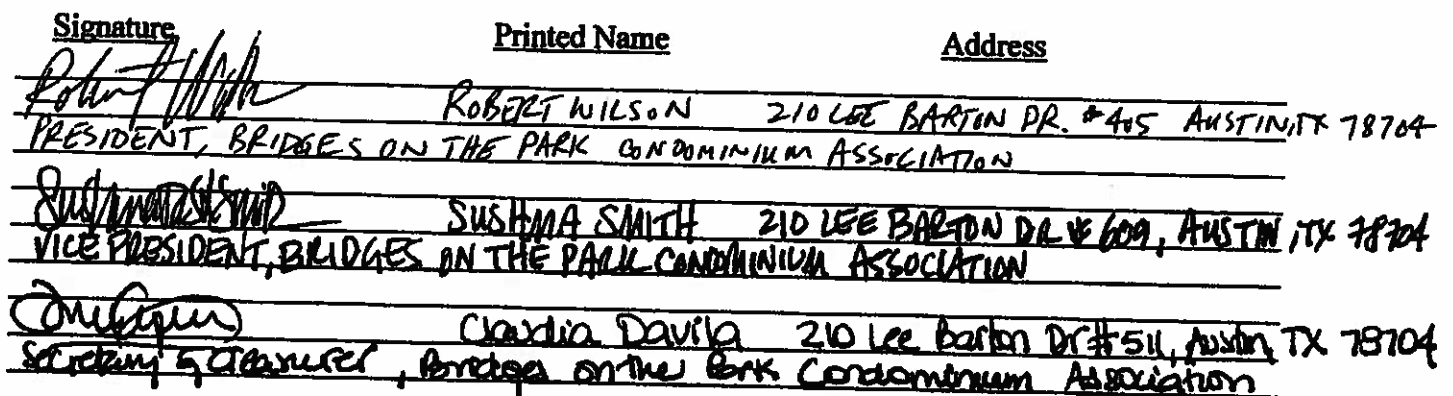 Signature Printed Name Address
ROBERT WILSON 210 LEE BARTON DR. #405 AUSTIN, TX 78704
PRESIDENT, BRIDGES ON THE PARK CONDOMINIUM ASSOCIATION
SUSHMA SMITH 210 LEE BARTON DR # 609, AUSTIN, TX 78704
VICE PRESIDENT, BRIDGES ON THE PARK CONDOMINIUM ASSOCIATION
Claudia Davila 210 Lee Barton Dr #511, Austin, TX 78704
Secretary & Treasurer, Bridges on the Park Condominium Association